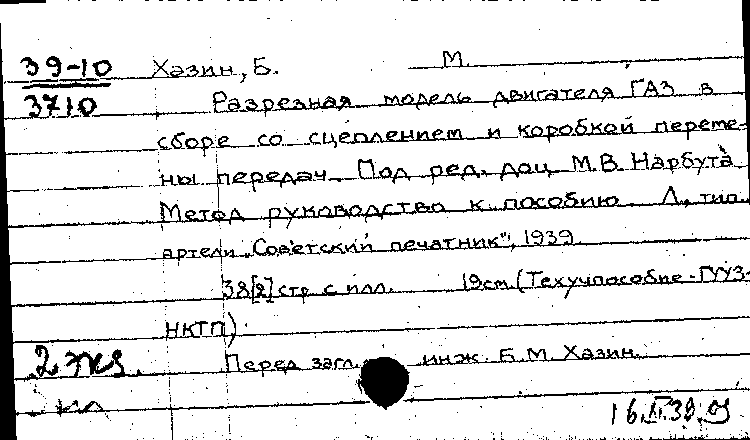 39-10 Хазин, Б. М.
3710 Разрезная модель двигателя ГАЗ в
сборе со сцеплением и коробкой переме-
ны передач. Под ред. доц. М.В. Нарбута
Метод руководство к пособию. Л., тип.
артели „Советский печатник", 1939
38[2] стр с илл. 19см. (Техучпособие-ГУУЗ-
НКТП).
2 экз. Перед загл. инж. Б.М. Хазин.